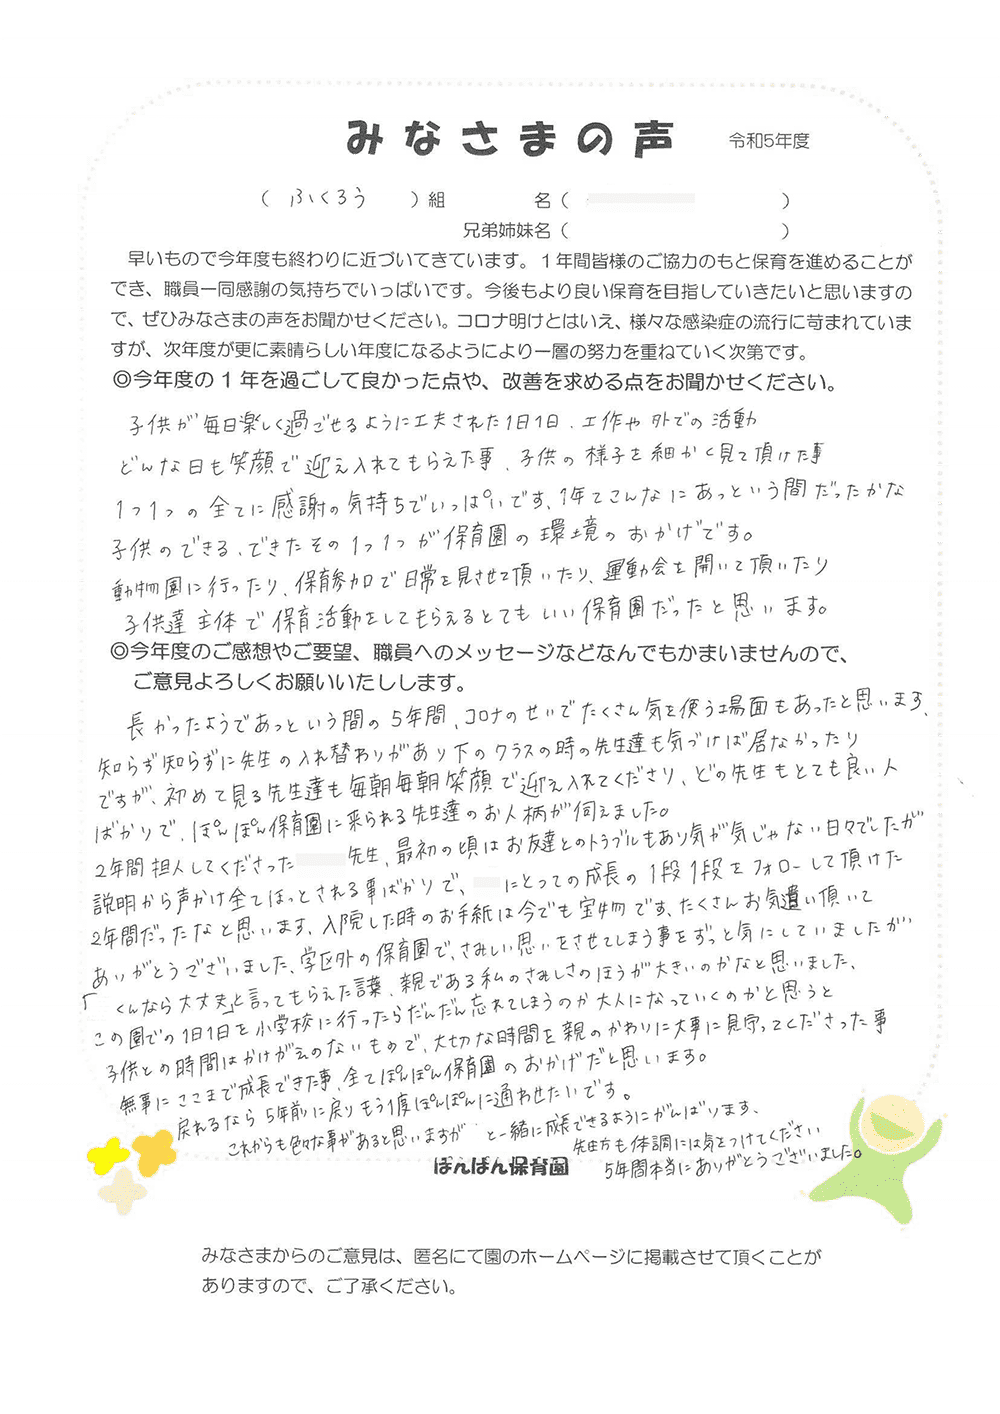 みなさまの声 令和5年度
( ふくろう )組 名( )
兄弟姉妹名( )
早いもので今年度も終わりに近づいてきています。1年間皆様のご協力のもと保育を進めることが
でき、職員一同感謝の気持ちでいっぱいです。今後もより良い保育を目指していきたいと思いますの
で、ぜひみなさまの声をお聞かせください。コロナ明けとはいえ、様々な感染症の流行に苛まれていま
すが、次年度が更に素晴らしい年度になるようにより一層の努力を重ねていく次第です。
◎今年度の1年を過ごして良かった点や、改善を求める点をお聞かせください。
子供が毎日楽しく過ごせるように工夫された1日1日、工作や外での活動
どんな日も笑顔で迎え入れてもらえた事、子供の様子を細かく見て頂けた事
1つ1つの全てに感謝の気持ちでいっぱいです、1年てこんなにあっという間だったかな
子供のできる、できたその1つ1つが保育園の環境のおかげです。
動物園に行ったり、保育参加で日常を見させて頂いたり、運動会を開いて頂いたり
子供達主体で保育活動をしてもらえるとてもいい保育園だったと思います。
◎今年度のご感想やご要望、職員へのメッセージなどなんでもかまいませんので、
ご意見よろしくお願いいたしします。
長かったようであっという間の5年間、コロナのせいでたくさん気を使う場面もあったと思います、
知らず知らずに先生の入れ替わりがあり下のクラスの時の先生達も気づけば居なかったり
ですが、初めて見る先生達も毎朝毎朝笑顔で迎え入れてくださり、どの先生もとても良い人
ばかりで、ぽんぽん保育園に来られる先生達のお人柄が伺えました。
2年間担人してくださった 先生、最初の頃はお友達とのトラブルもあり気が気じゃない日々でしたが
説明から声かけ全てほっとされる事ばかりで、 にとっての成長の1段1段をフォローして頂けた
2年間だったなと思います、入院した時のお手紙は今でも宝物です、たくさんお気遣い頂いて
ありがとうございました、学区外の保育園で、さみしい思いをさせてしまう事をずっと気にしていましたが
「 くんなら大丈夫」と言ってもらえた言葉、親である私のさみしさのほうが大きいのかなと思いました、
この園での1日1日を小学校に行ったらだんだん忘れてしまうのか大人になっていくのかと思うと
子供との時間はかけがえのないもので、大切な時間を親のかわりに大事に見守ってくださった事
無事にここまで成長できた事、全てぽんぽん保育園のおかげだと思います。
戻れるなら5年前に戻りもう1度ぽんぽんに通わせたいです。
これからも色々な事があると思いますが と一緒に成長できるようにがんばります、
先生方も体調には気をつけてください
5年間本当にありがとうございました。
ぽんぽん保育園
みなさまからのご意見は、匿名にて園のホームページに掲載させて頂くことが
ありますので、ご了承ください。